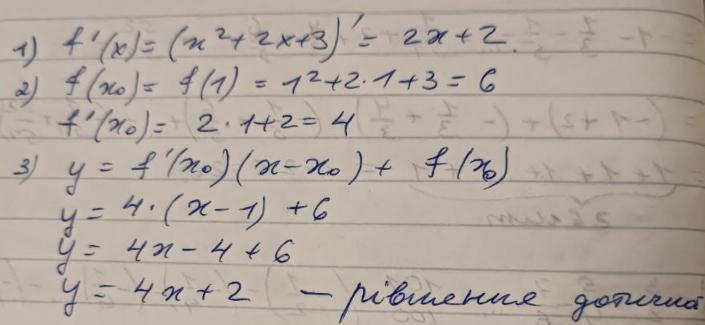 1) f'(x) = (x² + 2x + 3)' = 2x + 2.
2) f(x₀) = f(1) = 1² + 2 · 1 + 3 = 6
f'(x₀) = 2 · 1 + 2 = 4
3) y = f'(x₀)(x - x₀) + f(x₀)
y = 4 · (x - 1) + 6
y = 4x - 4 + 6
y = 4x + 2 — рівняння дотичної